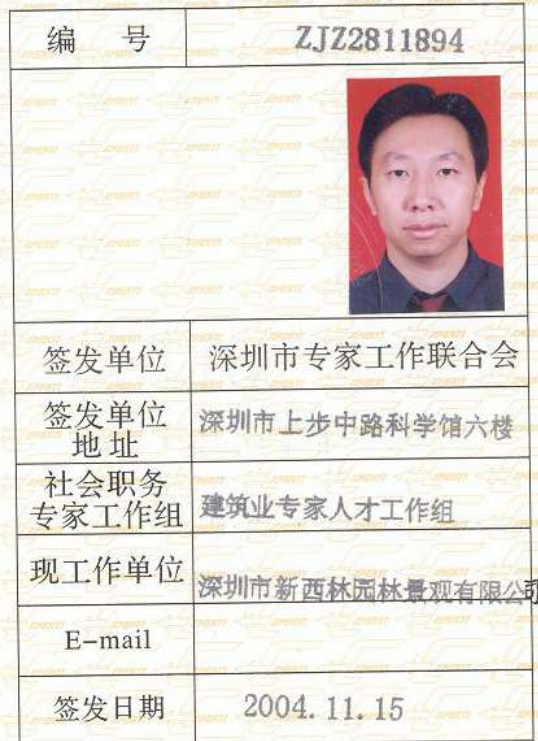 编 号 ZJZ2811894
签发单位 深圳市专家工作联合会
签发单位
地址 深圳市上步中路科学馆六楼
社会职务
专家工作组 建筑业专家人才工作组
现工作单位 深圳市新西林园林景观有限公司
E-mail
签发日期 2004.11.15